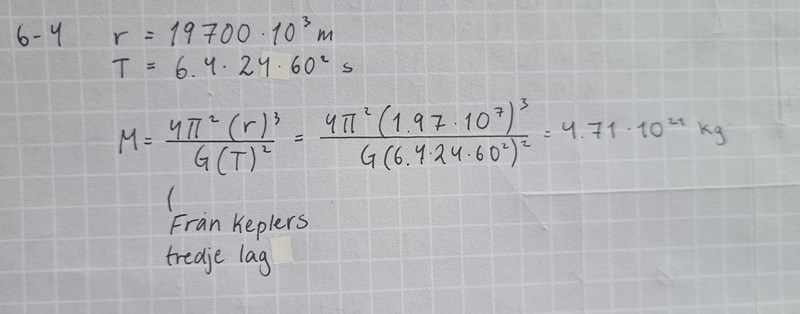 6-4 r = 19700 · 10³ m
T = 6.4 · 24 · 60² s
M = 4π² (r)³ / G(T)² = 4π² (1.97 · 10⁷)³ / G(6.4 · 24 · 60²)² = 4.71 · 10²¹ kg
Från Keplers
tredje lag